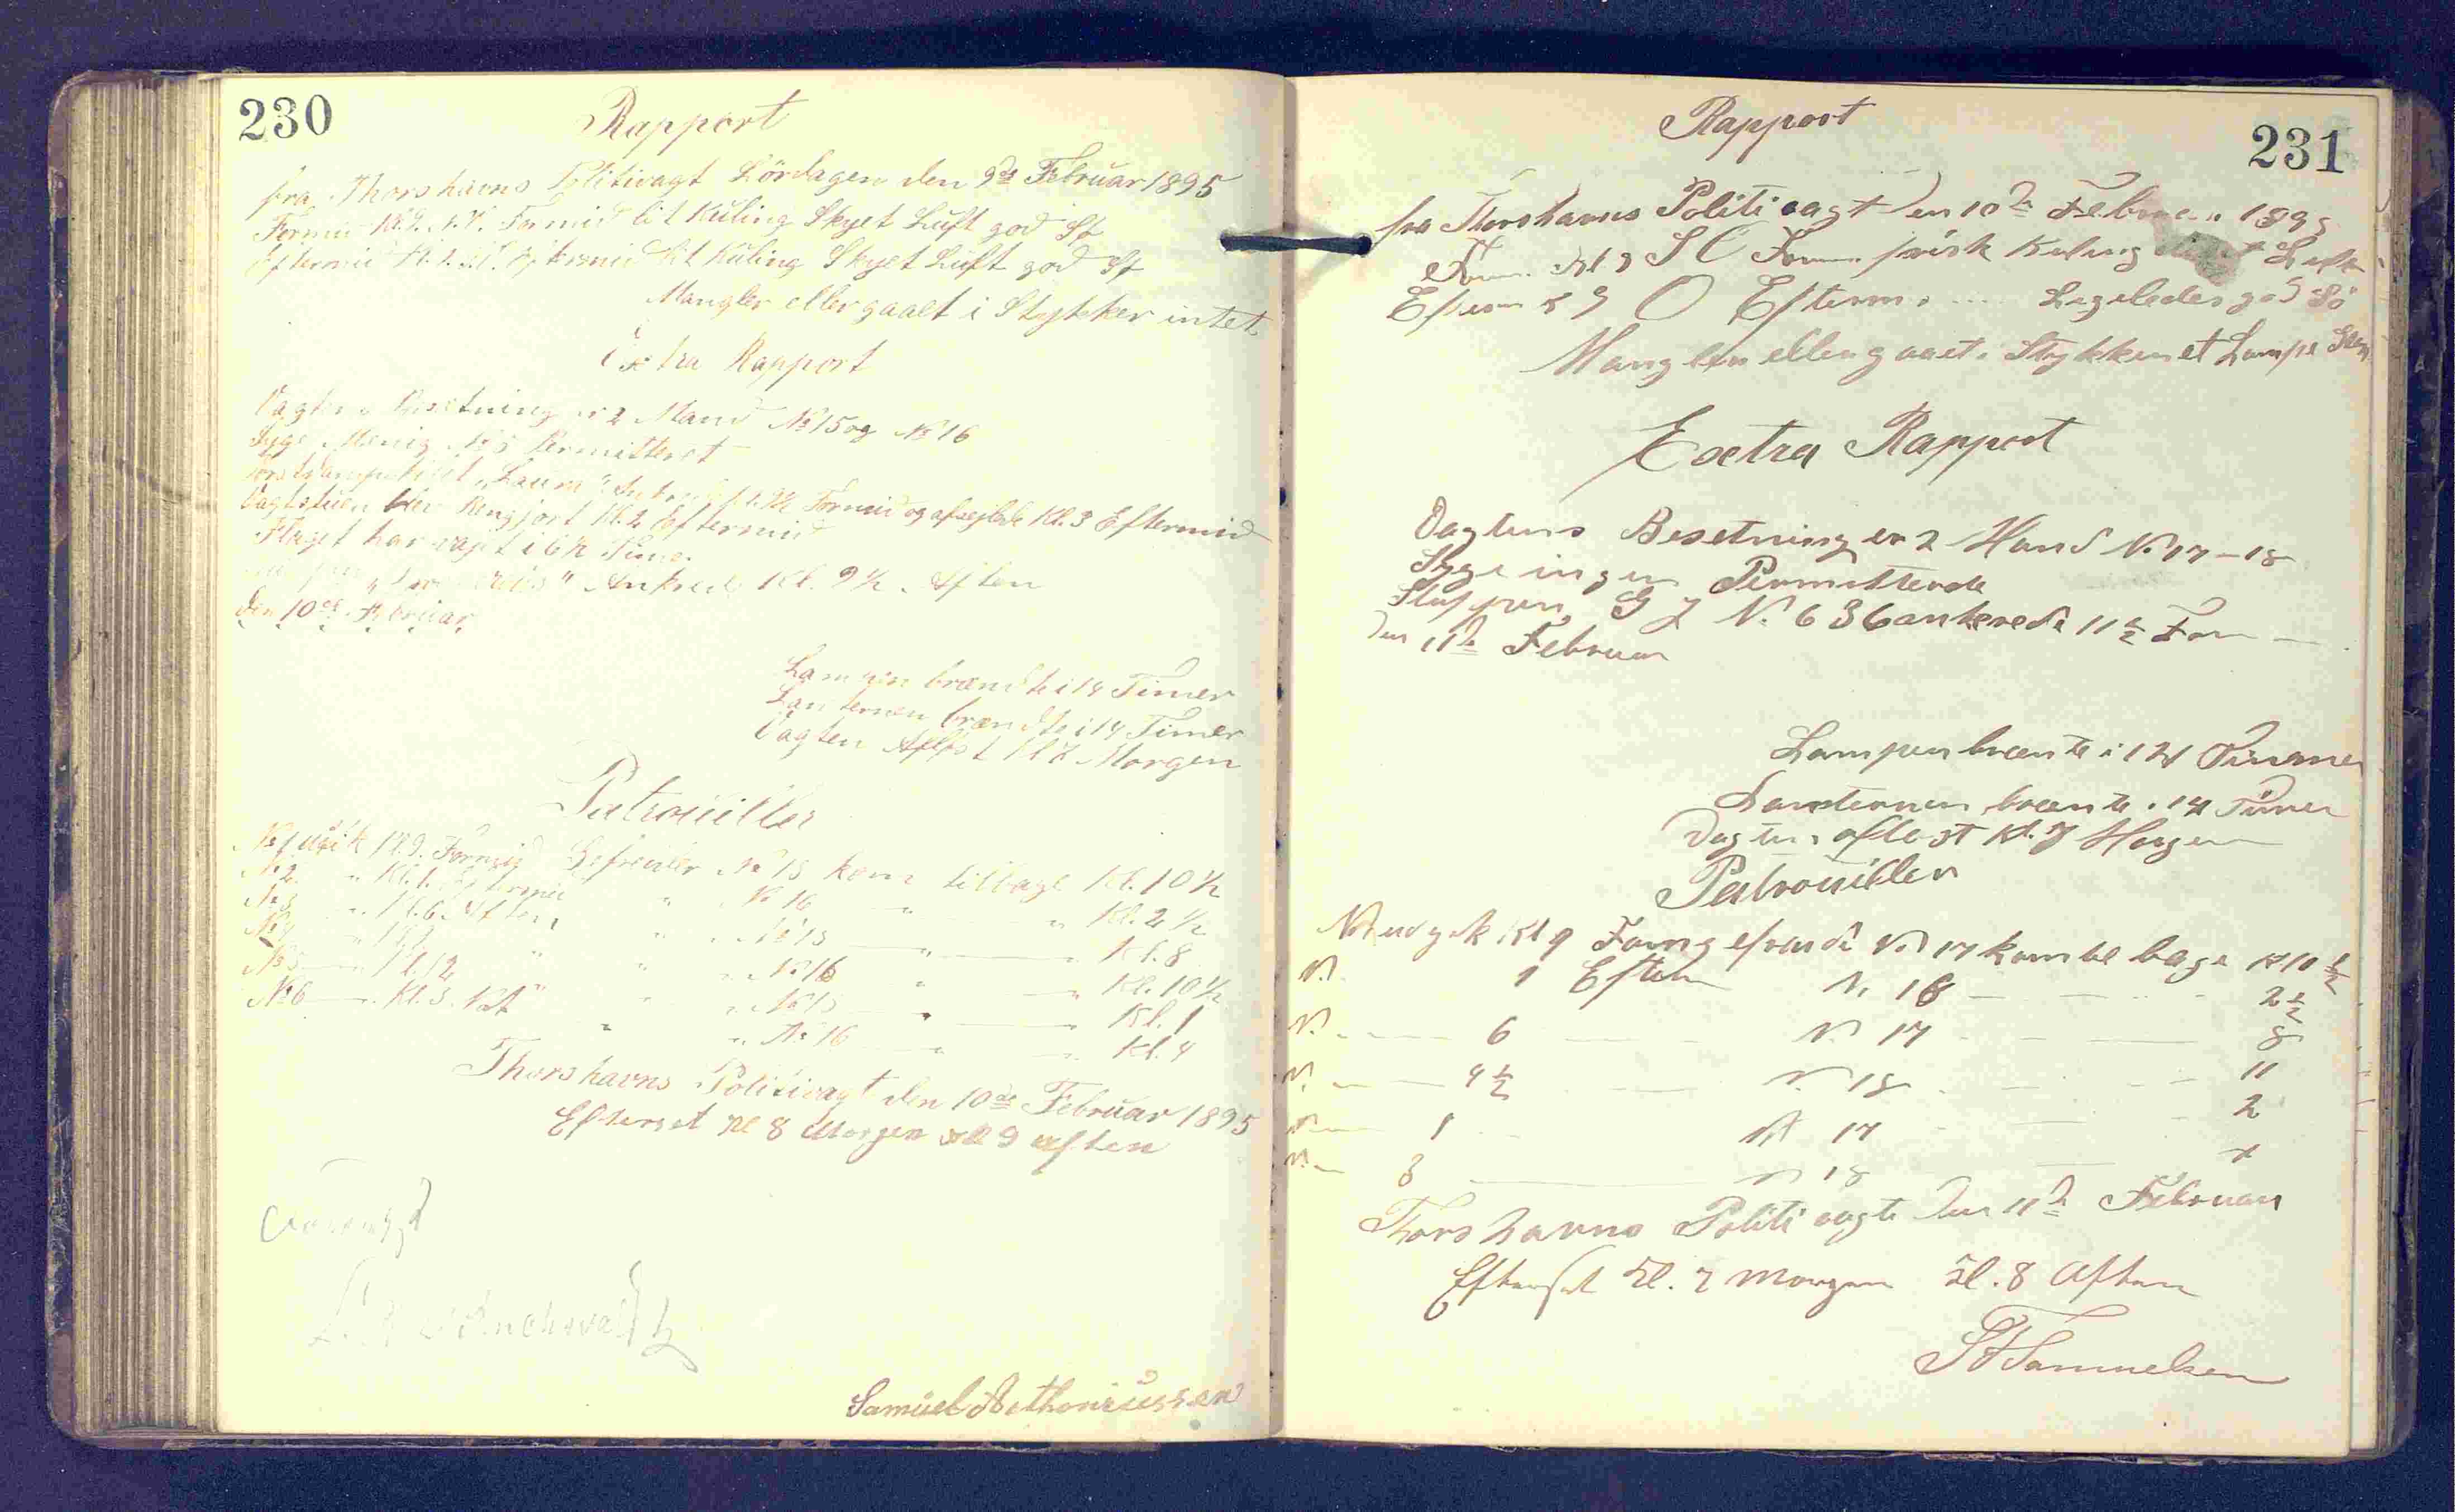 230
Rapport
fra Thorshavns Politivagt Lördagen den 9de Februar 1895
Formid Kl. 9. Formid lit Kuling Skyet Luft god Sø
Eftermid Kl. Eftermid lit Kuling Skyet Luft god Sø
Mangler eller gaaet i Stykker intet
Extra Rapport
Vagtens Besetning er 2 Mand No 15 og No 16
Syge Menig No 5 Permitteret
"Laura" Formid og afsejlede Kl. 3 Eftermid
Vagtstuen blev Rengjort Kl. 2 Eftermid
Flaget har vajet i 6½ Timer
Ankrede Kl. 9½ Aften
den 10de Februar
Lampen brændte i 14 Timer
Lanternen brændte i 14 Timer
Vagten Afløst Kl 7 Morgen
Patrouiller
No 1 udgik Kl. 9. Formid Gefreider No 15 kom tilbage Kl. 10½
No 2. " Kl. 1. Eftermid " No 16 " " Kl. 2½
No 3 " Kl. 6 Aften " " No 15 " " Kl. 8
No 4 " " " " No 16 " " Kl. 10½
No 5 " Kl. 12 " " No 15 " " Kl. 1
No 6 " Kl. 3. Nat " " No 16 " " Kl. 4
Thorshavns Politivagt den 10de Februar 1895
Efterset Kl 8 Morgen Kl 9 aften
Samuel
231
Rapport
fra Thorshavns Politivagt Den 10de Februar 1895
Form. Kl 9 S O Form. frisk Kuling Luft
Efterm K 9 O Efterm. Ligeledes god Sö
Mangler eller gaaet i Stykker et Lampe
Extra Rapport
Vagtens Besetning er 2 Mand No 17 – 18
Syge ingen Permitterede
Sluppen G J No 636 ankrede 11½ Form
Den 11de Februar
Lampen brænte i 14 Timer
Lanternen brænte i 14 Timer
Vagten afløst Kl. 7 Morgen
Patrouiller
No 1 udgik Kl 9 Form gefreider No 17 kom tilbage Kl 10½
N. 1 Efterm N. 18 2½
N. 6 N. 17 8
N. 9½ N. 18 11
N. 1 N. 17 2
N. 3 N 18
Thorshavns Politivagt Den 11de Februar
Efterset Kl. 7 Morgen Kl. 8 Aften
Samuelsen